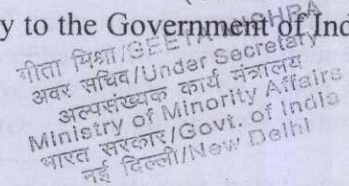 y to the Government of Ind
गीता मिश्रा/GEETA MISHRA
अवर सचिव/Under Secretary
अल्पसंख्यक कार्य मंत्रालय
Ministry of Minority Affairs
भारत सरकार/Govt. of India
नई दिल्ली/New Delhi